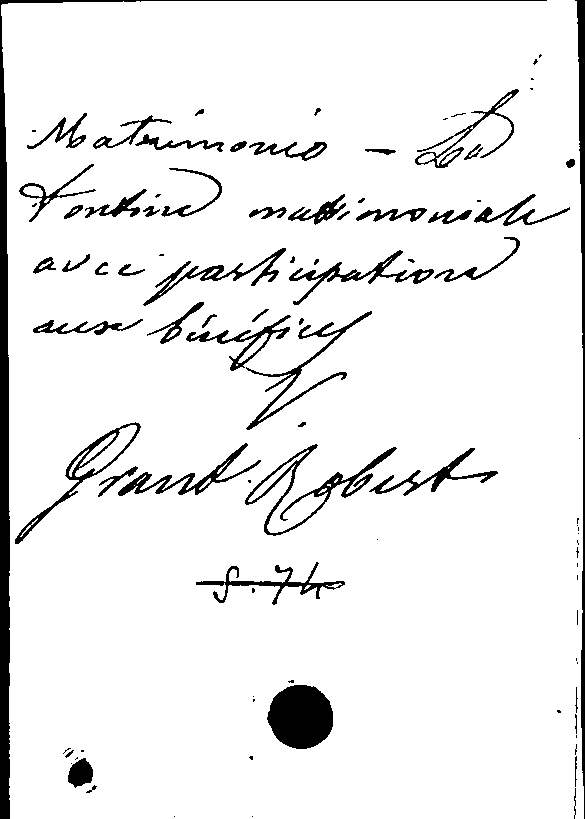 Matrimonio - La
tontine matrimoniale
avec participation
aux bénéfices
V
Grant Robert
S. 74